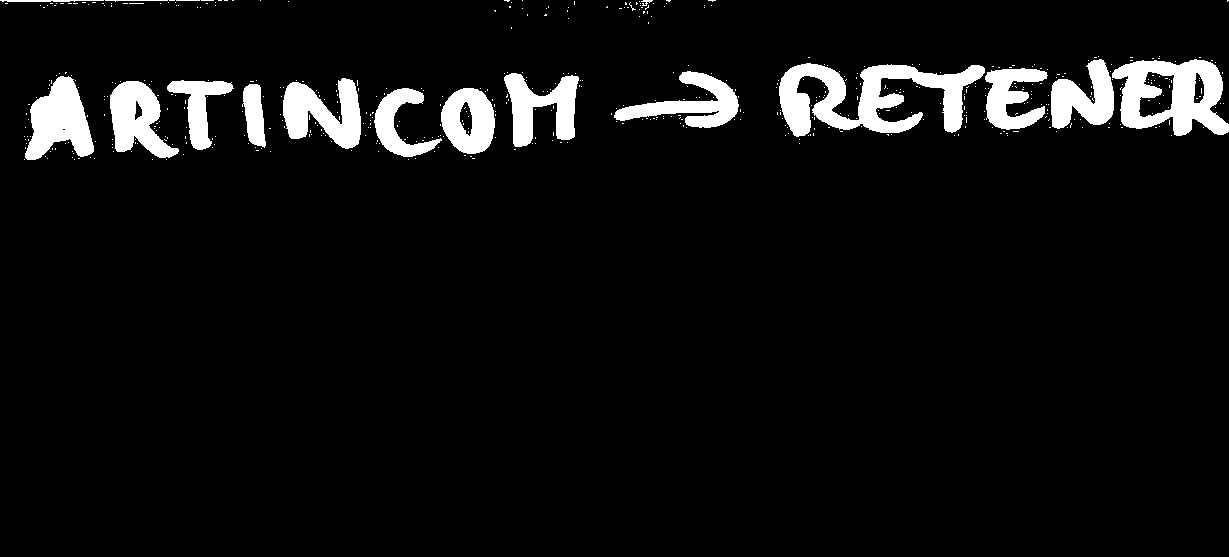 ARTINCOM → RETENER